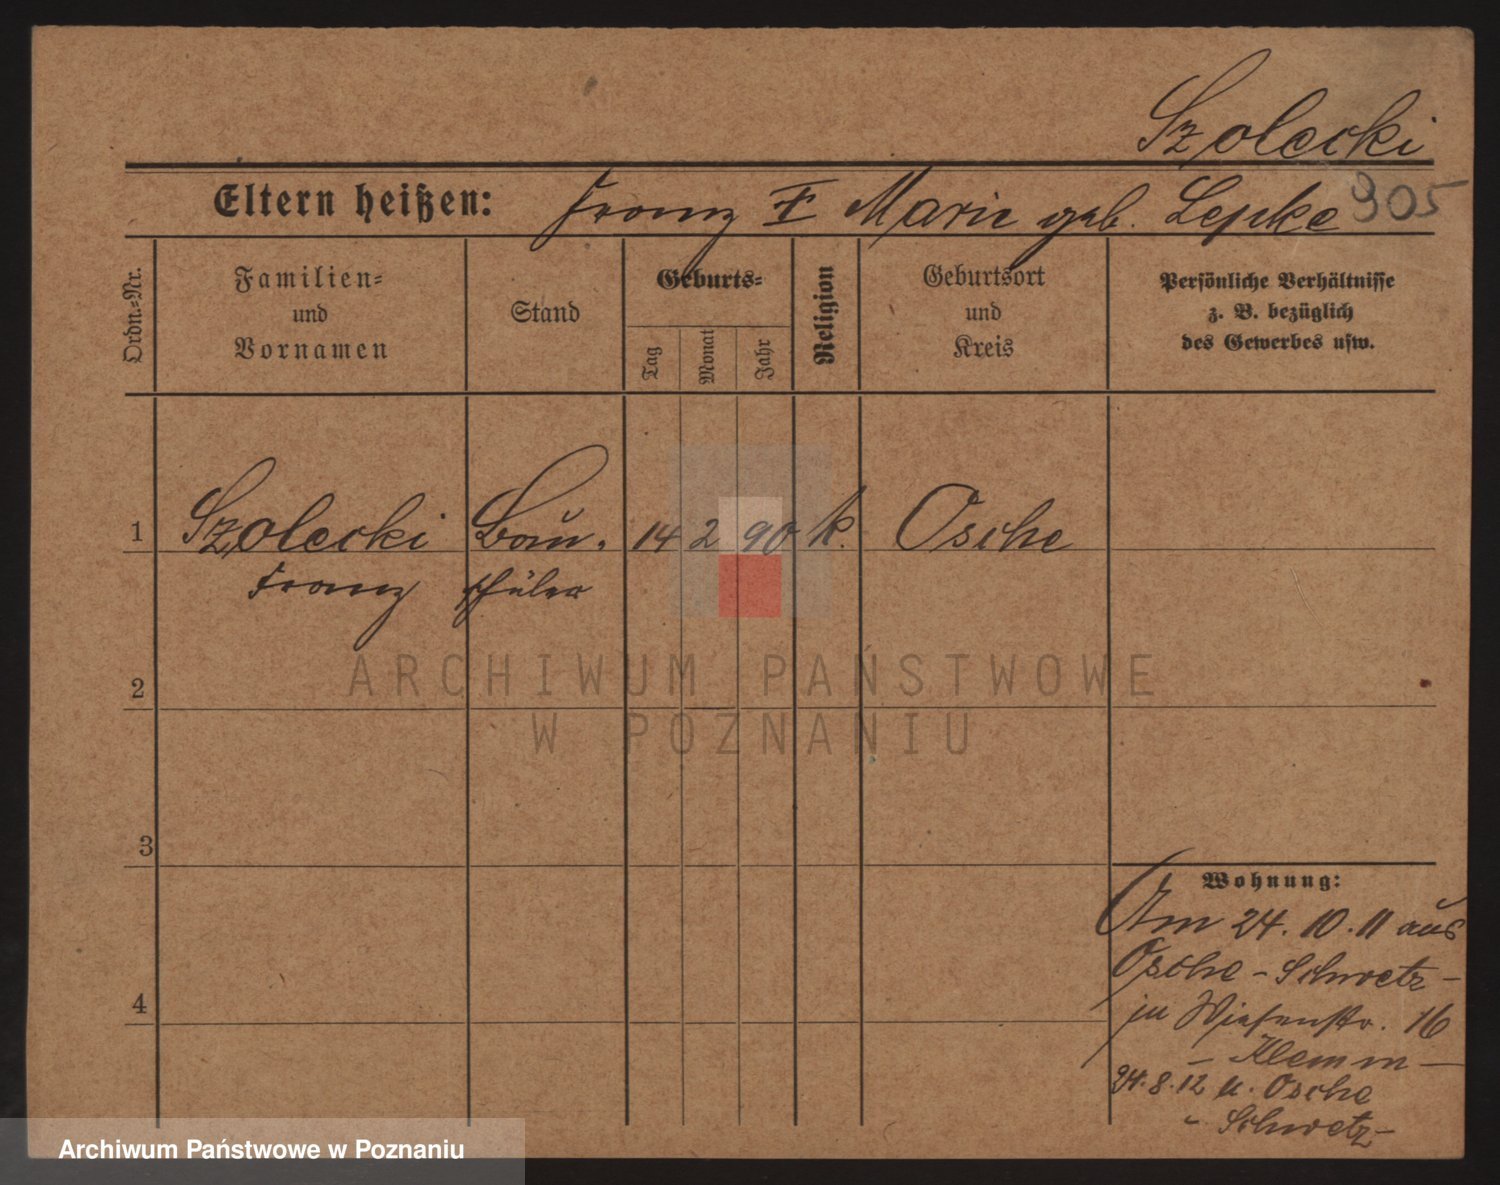 Szolecki
Eltern heißen: Franz I Marie geb. Lepke 305
Ordn.=Nr.
Familien=
und
Vornamen
Stand
Geburts=
Tag
Monat
Jahr
Religion
Geburtsort
und
Kreis
Persönliche Verhältnisse
z. B. bezüglich
des Gewerbes usw.
1 Szolecki Bau. 14 2 90 k. Osche
Franz schüler
ARCHIWUM PAŃSTWOWE
W POZNANIU
2
3
4
Wohnung:
Am 24.10.11 aus
Osche - Schwetz -
zu Wiesenstr. 16
- Klemm -
24.8.12 n. Osche
- Schwetz -
Archiwum Państwowe w Poznaniu